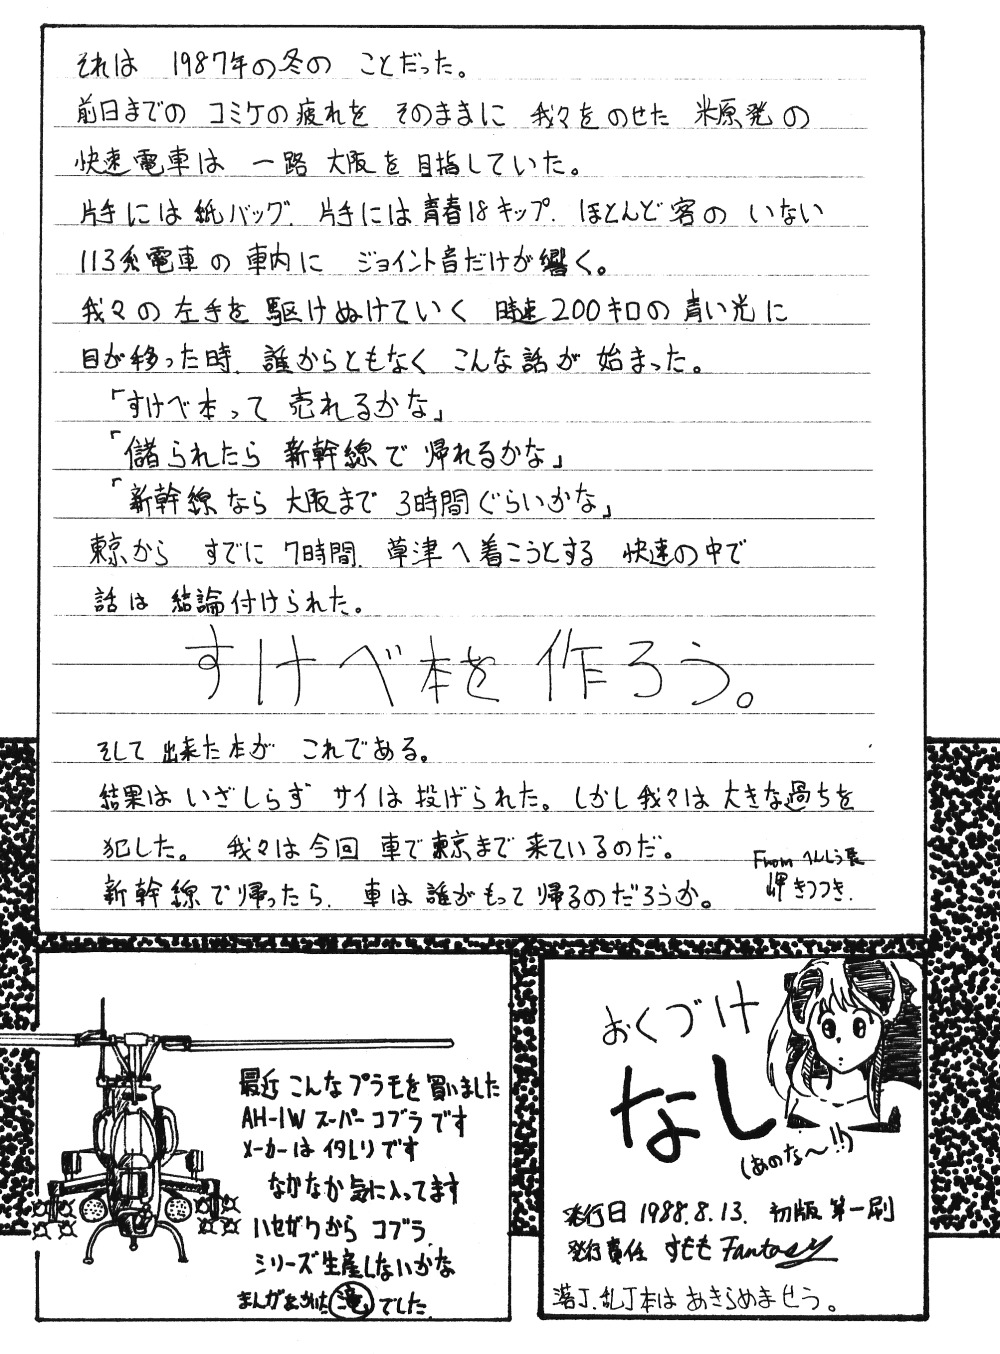 それは 1987年の冬の ことだった。
前日までの コミケの疲れを そのままに 我々をのせた 米原発の
快速電車は 一路 大阪を目指していた。
片手には紙バッグ、片手には青春18キップ、ほとんど客の いない
113系電車の 車内に ジョイント音だけが響く。
我々の左手を 駆けぬけていく 時速200キロの 青い光に
目が移った時、誰からともなく こんな話が 始まった。
「すけべ本って 売れるかな」
「儲られたら 新幹線で 帰れるかな」
「新幹線なら 大阪まで 3時間ぐらいかな」
東京から すでに 7時間、草津へ着こうとする 快速の中で
話は 結論付けられた。
すけべ本を作ろう。
そして 出来た本が これである。
結果は いざしらず サイは投げられた。しかし我々は 大きな過ちを
犯した。 我々は今回 車で東京まで 来ているのだ。
新幹線で帰ったら、車は 誰がもって帰るのだろうか。
From へんしう長
岬 きつつき.
最近 こんなプラモを買いました
AH-1W スーパーコブラです
メーカーは イタレリです
なかなか気に入ってます
ハセガワから コブラ
シリーズ生産しないかな
まんがをかいた 滝 でした.
おくづけ
なし
(あのな〜!!)
発行日 1988.8.13. 初版 第一刷
発行責任 すもも Fantasy
落丁、乱丁本は あきらめませう。